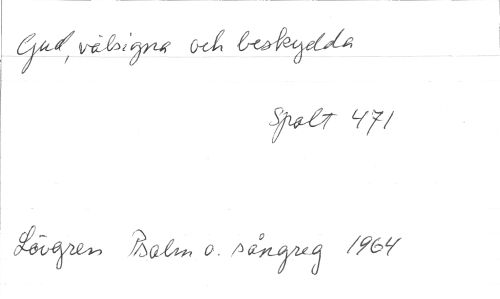 Gud, välsigna och beskydda
Spalt 471
Lövgren Psalm o. sångreg 1964